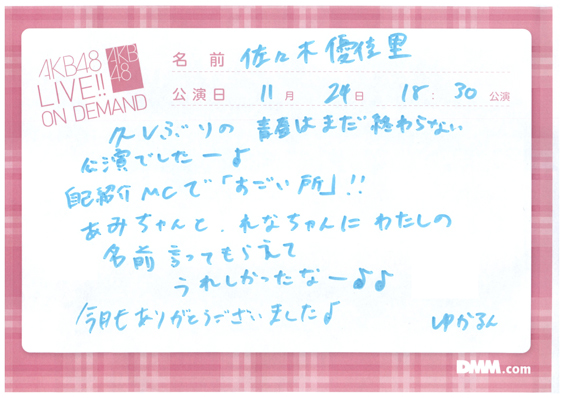 AKB48
LIVE!!
ON DEMAND
AKB
48
名前 佐々木優佳里
公演日 11月 24日 18:30 公演
久しぶりの 青春はまだ終わらない
公演でしたー♪
自己紹介MCで「すごい所」!!
あみちゃんと、れなちゃんに わたしの
名前 言ってもらえて
うれしかったなー♪♪
今日もありがとうございました♪
ゆかるん
DMM.com